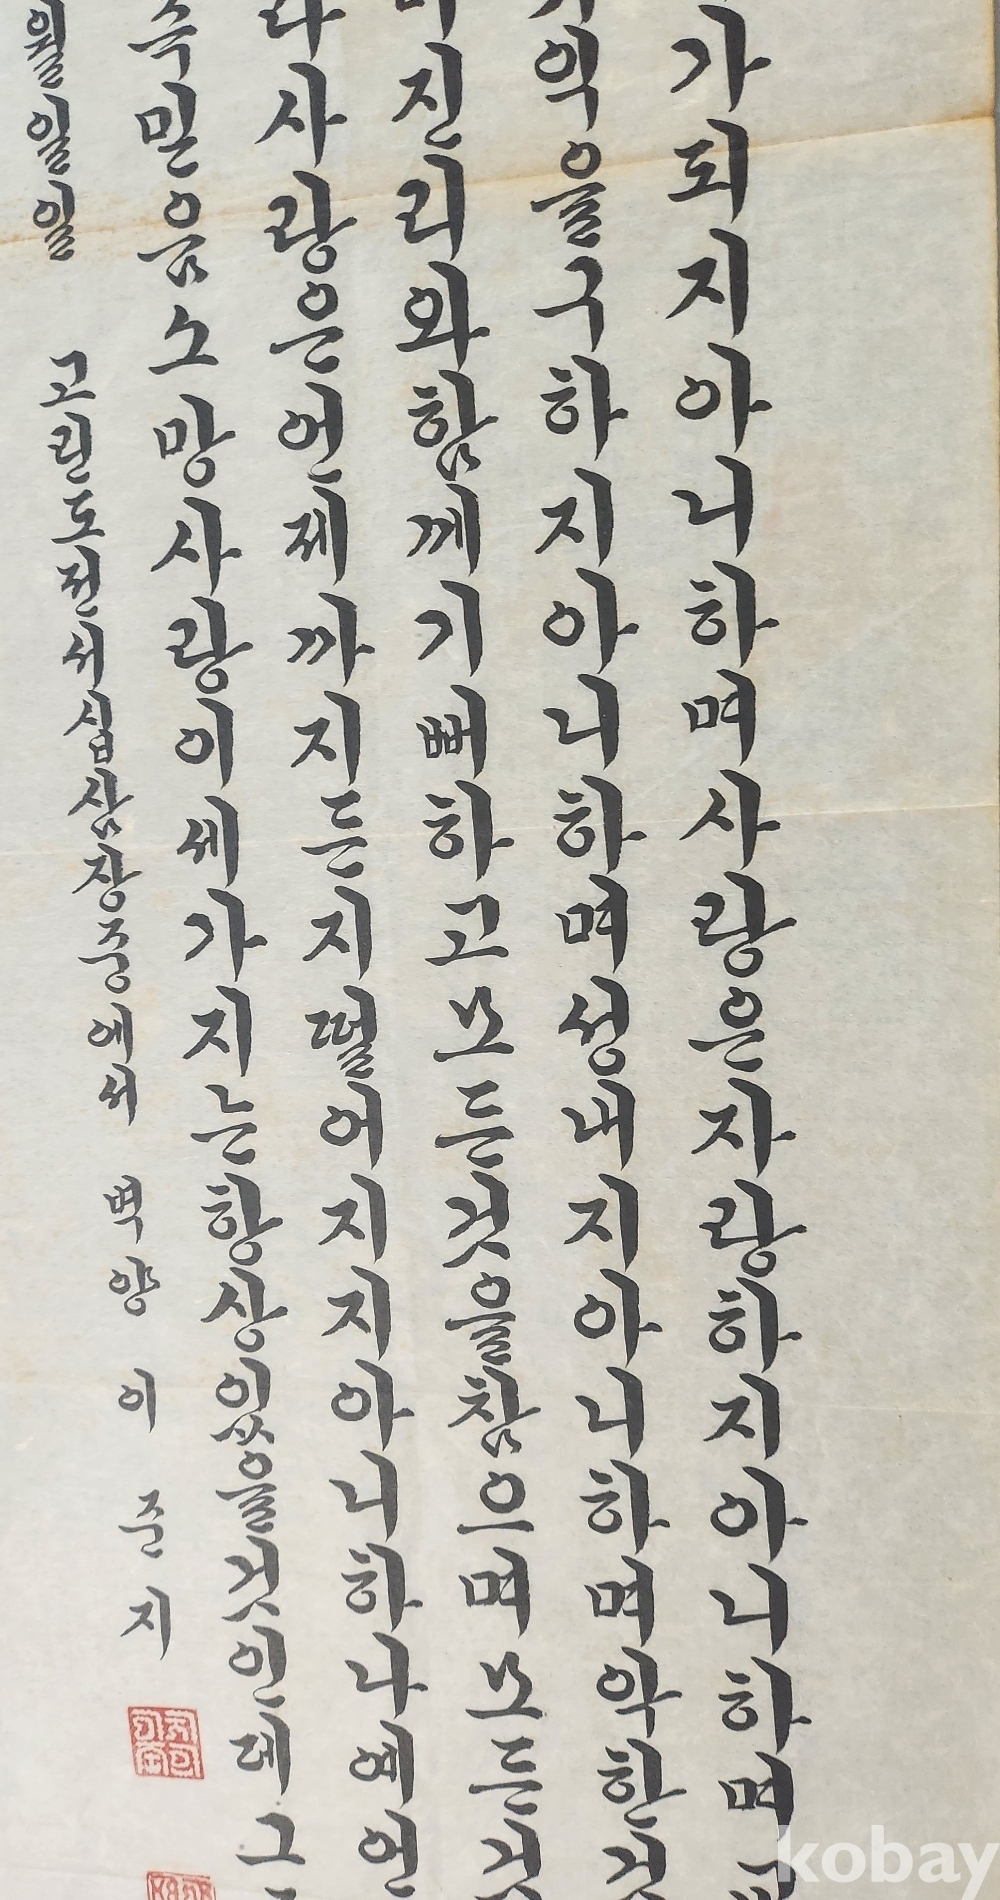 가되지아니하며사랑은자랑하지아니하며
익을구하지아니하며성내지아니하며악한것
진리와함께기뻐하고모든것을참으며모든것
사랑은언제까지든지떨어지지아니하나예언
믿음소망사랑이세가지는항상있을것인데그
월일일 고린도전서십삼장중에서 벽양 이준지
kobay